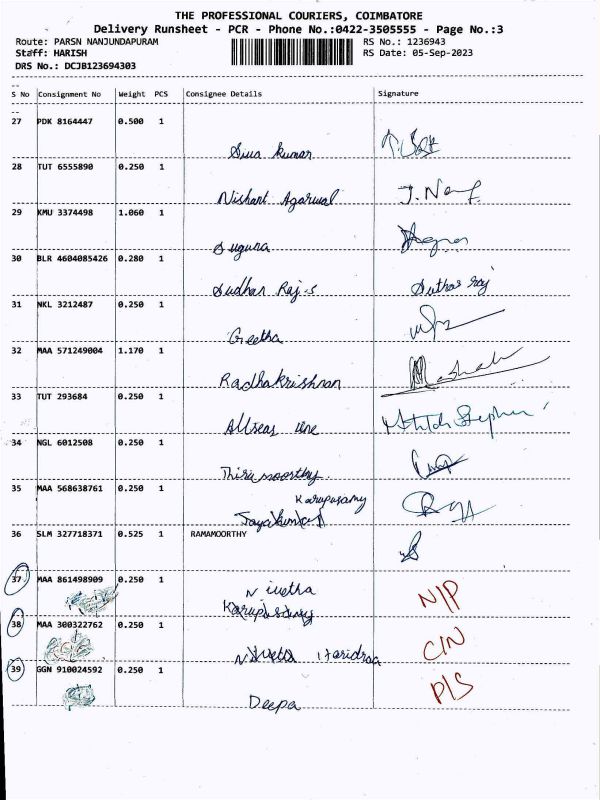 THE PROFESSIONAL COURIERS, COIMBATORE
Delivery Runsheet - PCR - Phone No.:0422-3505555 - Page No.:3
Route: PARSN NANJUNDAPURAM RS No.: 1236943
Staff: HARISH RS Date: 05-Sep-2023
DRS No.: DCJB123694303
S No Consignment No Weight PCS Consignee Details Signature
27 PDK 8164447 0.500 1
Siva kumar
28 TUT 6555890 0.250 1
Nishant Agarwal
29 KMU 3374498 1.060 1
Suguna
30 BLR 4604085426 0.280 1
Sudhan Raj-S Suthas raj
31 NKL 3212487 0.250 1
Geetha
32 MAA 571249004 1.170 1
Radhakrishnan
33 TUT 293684 0.250 1
Allseas line Stephen
34 NGL 6012508 0.250 1
Thirumoorthy.
35 MAA 568638761 0.250 1
Karupusamy
Jayakumar
36 SLM 327718371 0.525 1 RAMAMOORTHY
37 MAA 861498909 0.250 1
Nivetha N/P
Karupusamy
38 MAA 300322762 0.250 1
Nivetha Haridraa C/N
39 GGN 910024592 0.250 1
Deepa P/S